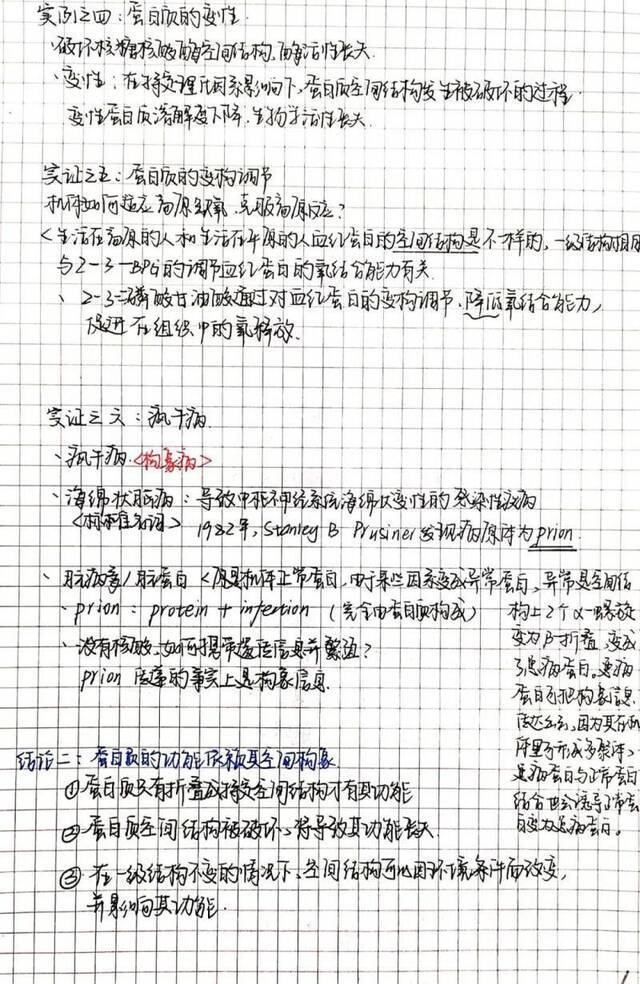 实例之四:蛋白质的变性.
、破坏核糖核酸酶空间结构,酶活性丧失.
·变性:在特定理化因素影响下,蛋白质空间结构发生被破坏的过程.
变性蛋白质溶解度下降.生物学活性丧失.
实证之五:蛋白质的变构调节
机体如何适应高原缺氧,克服高原反应?
<生活在高原的人和生活在平原的人血红蛋白的空间结构是不一样的,一级结构相同
与2-3-BPG的调节血红蛋白的氧结合能力有关.
、2-3二磷酸甘油酸通过对血红蛋白的变构调节,降低氧结合能力,
促进在组织中的氧释放.
实证之六:疯牛病.
、疯牛病.<构象病>
、海绵状脑病:导致中枢神经系统海绵状变性的感染性疾病
1982年,Stanley B Prusiner发现病原体为prion.
、朊病毒/朊蛋白<原是机体正常蛋白,由于某些因素变成异常蛋白,异常是空间结
构上2个α-螺旋
变为β-折叠,变成
了患病蛋白。患病
蛋白可把构象信息
因为其在
形成多聚体>
患病蛋白与正常蛋白
结合也会诱导正常蛋
白变为患病蛋白。
·prion:protein+infection(完全由蛋白质构成)
·没有核酸.如何携带遗传信息并繁殖?
prion传递的事实上是构象信息.
结论二:蛋白质的功能依赖其空间构象
①蛋白质只有折叠成特定空间结构才有其功能
②蛋白质空间结构被破坏、将导致其功能丧失.
③在一级结构不变的情况下、空间结构可以因环境条件而改变,
并影响其功能.